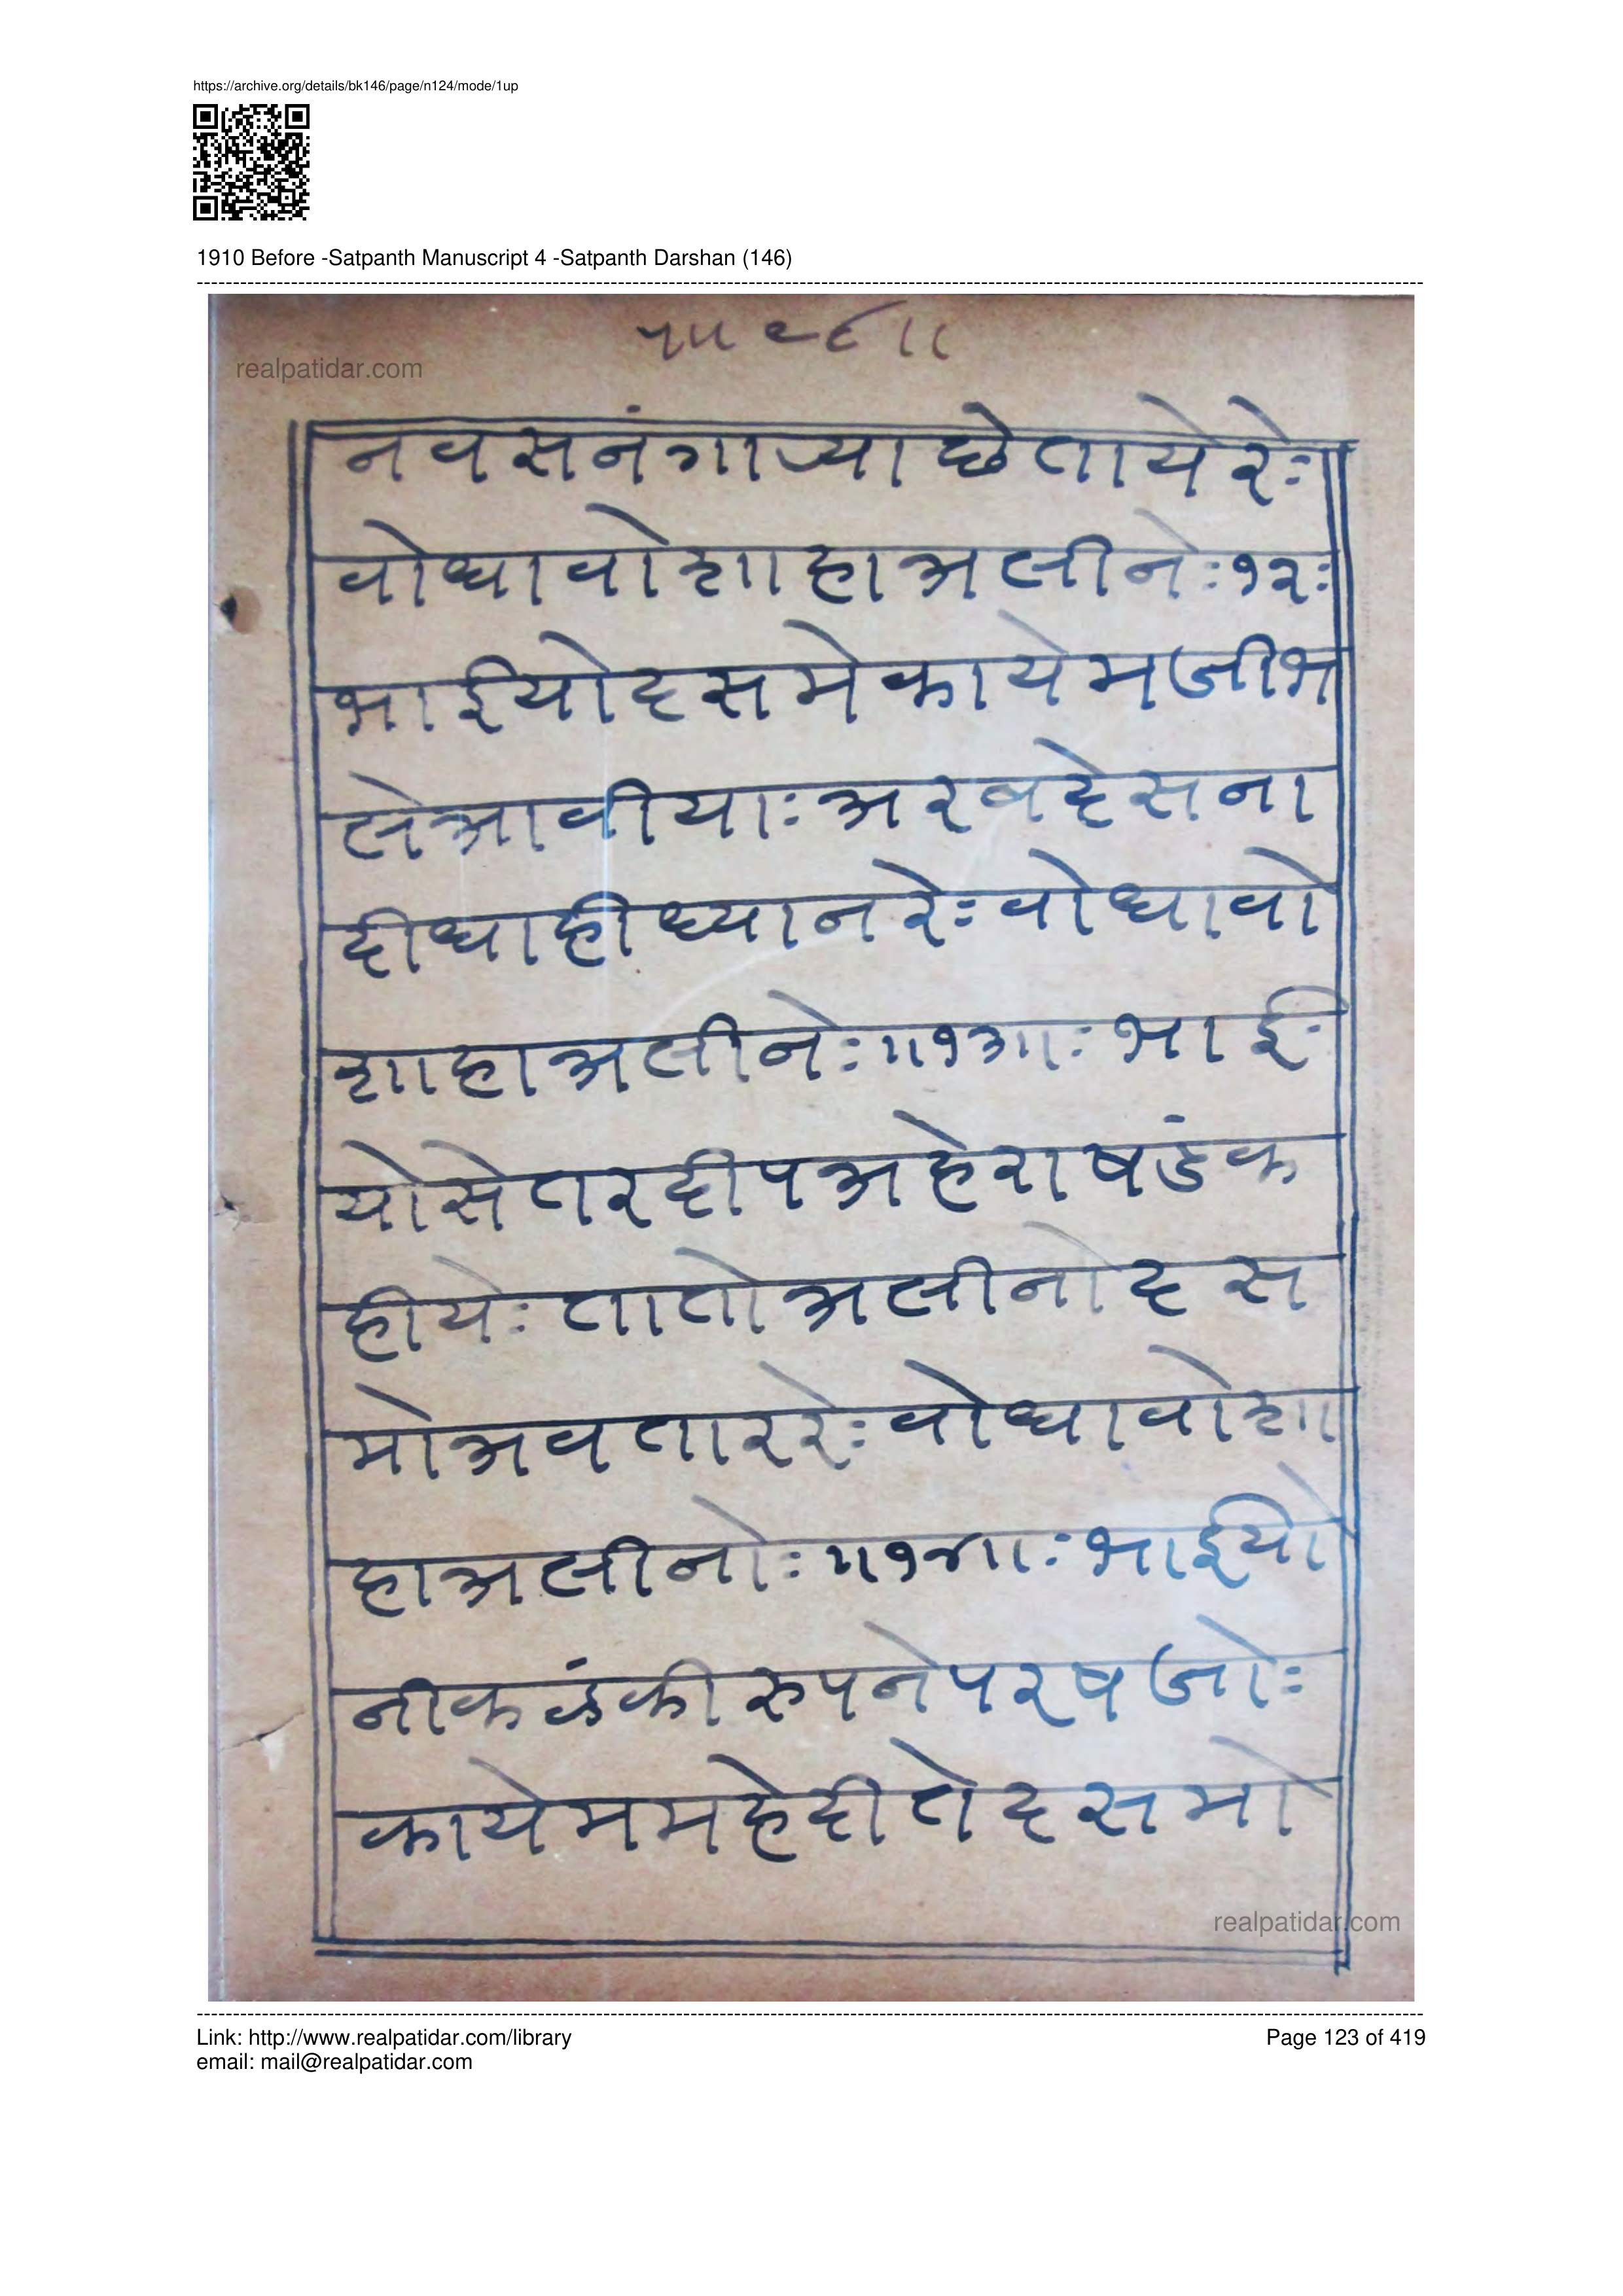 https://archive.org/details/bk146/page/n124/mode/1up
1910 Before -Satpanth Manuscript 4 -Satpanth Darshan (146)
realpatidar.com
नवसनंगाप्या छे तायेरेः
वोधावो शाहा अलीनेः १२ः
भाईयो दसमे कायेमजी भ
ले आवीयाः अरब देसना
दीधा ही ध्यान रेः वोधावो
शाहा अलीनेः ॥१३॥ः भाई
यो सेतरदीप अहेराषडंक
हीयेः तातो अलीनो दस
मो अवतार रेः वोधावो शा
हा अलीनोः ॥१४॥ः भाईयो
नीकळंकी रुपने परषजोः
कायेम महेदी ते दसमो
realpatidar.com
Link: http://www.realpatidar.com/library
email: mail@realpatidar.com
Page 123 of 419